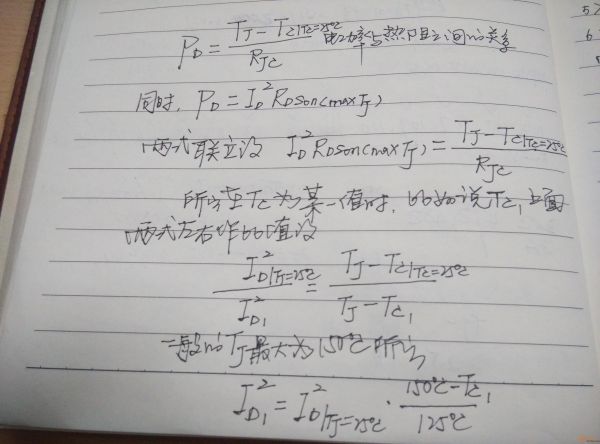 P_D = (T_J - T_C|Tc=25℃) / R_JC 电功率与热阻之间的关系
同时, P_D = I_D² R_DSon(max T_J)
两式联立设 I_D² R_DSon(max T_J) = (T_J - T_C|Tc=25℃) / R_JC
所以在Tc为某一值时, 比如说Tc₁ 上面
两式左右作比值设
I_D²|Tj=25℃ / I_D₁² = (T_J - T_C|Tc=25℃) / (T_J - Tc₁)
一般的T_J最大为150℃所以
I_D₁² = I_D²|Tj=25℃ · (150℃ - Tc₁) / 125℃
5
6